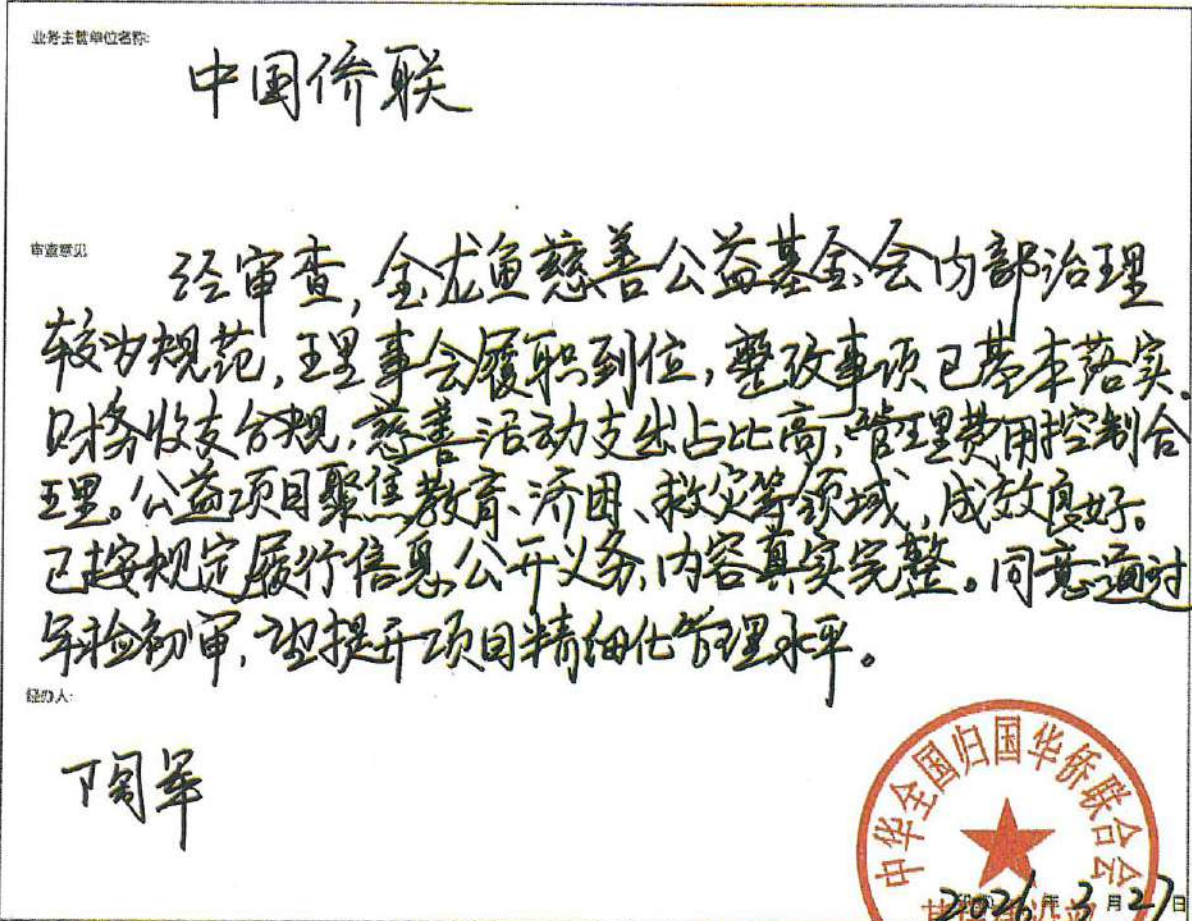 业务主管单位名称:
中国侨联
审查意见
经审查,金龙鱼慈善公益基金会内部治理
较为规范,理事会履职到位,整改事项已基本落实.
财务收支合规,慈善活动支出占比高,管理费用控制合
理。公益项目聚焦教育、济困、救灾等领域,成效良好。
已按规定履行信息公开义务,内容真实完整。同意通过
年检初审,望提升项目精细化管理水平。
经办人:
中华全国归国华侨联合会
2026年3月27日